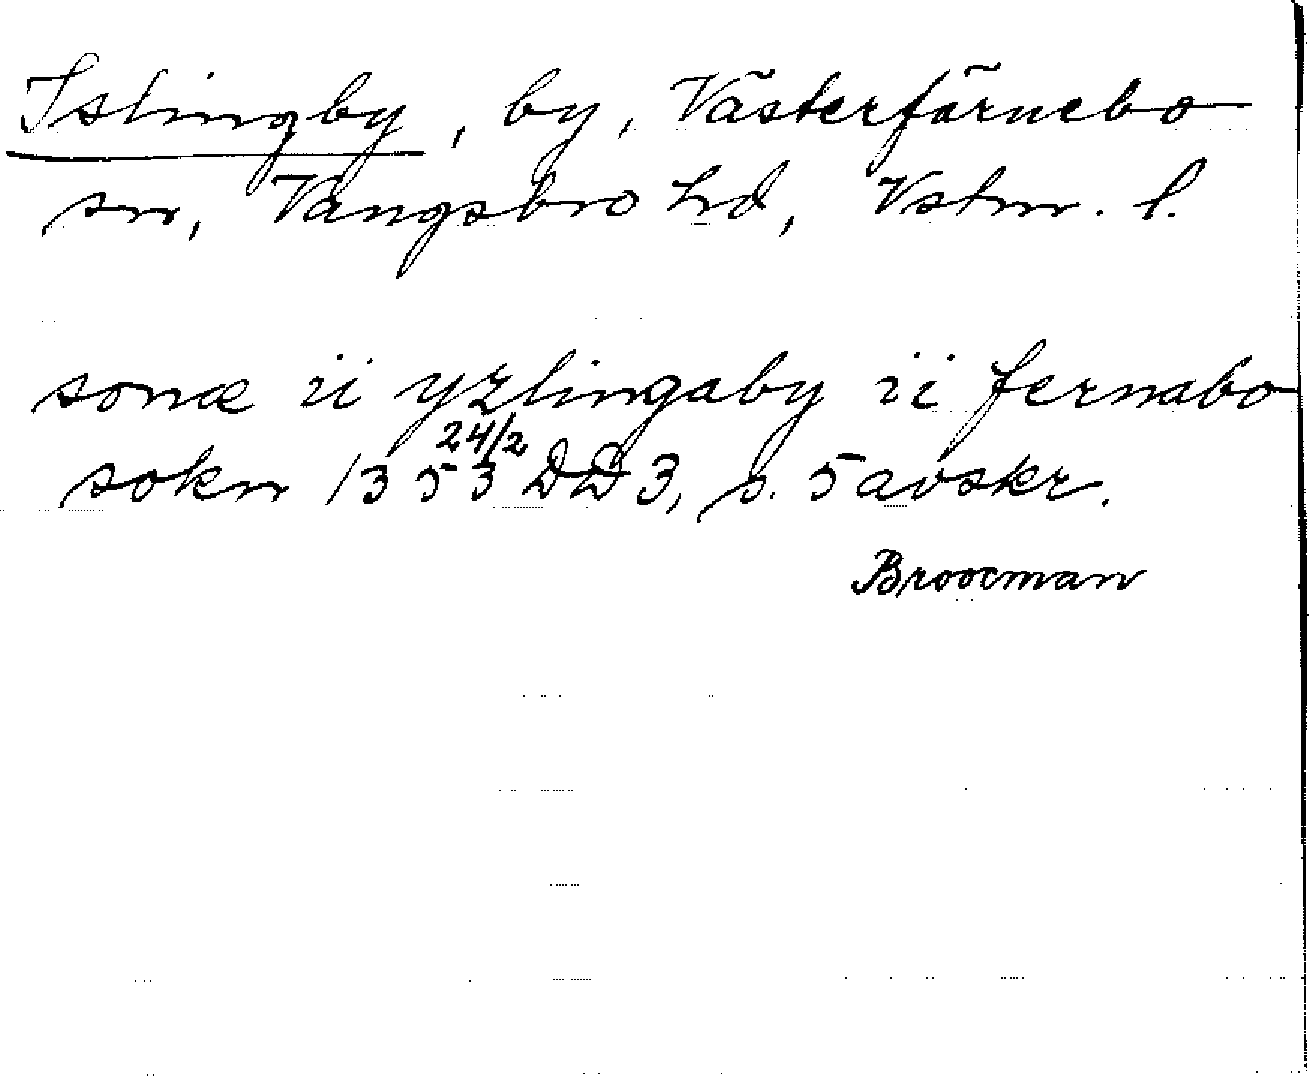 Islingby, by, Västerfärnebo
sn, Vangsbro hd, Vstm. l.
sonæ ii yzlingaby ii fernabo
sokn 1353 24/2 DD 3, s. 5 avskr.
Broocman